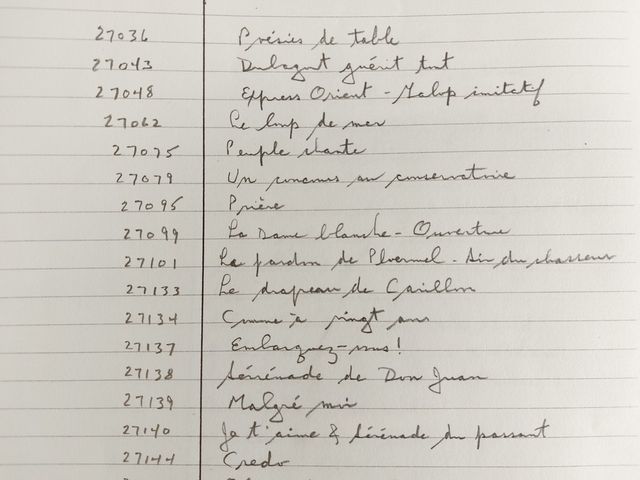 27036 Poésies de table
27043 Dubagout guérit tout
27048 Express Orient - Galop imitatif
27062 Le loup de mer
27075 Peuple chante
27079 Un concours au conservatoire
27095 Prière
27099 La Dame blanche - Ouverture
27101 Le pardon de Ploermel - Air du chasseur
27133 Le drapeau de Carillon
27134 Comme à vingt ans
27137 Embarquez-vous!
27138 Sérénade de Don Juan
27139 Malgré moi
27140 Je t'aime & Sérénade du passant
27144 Credo